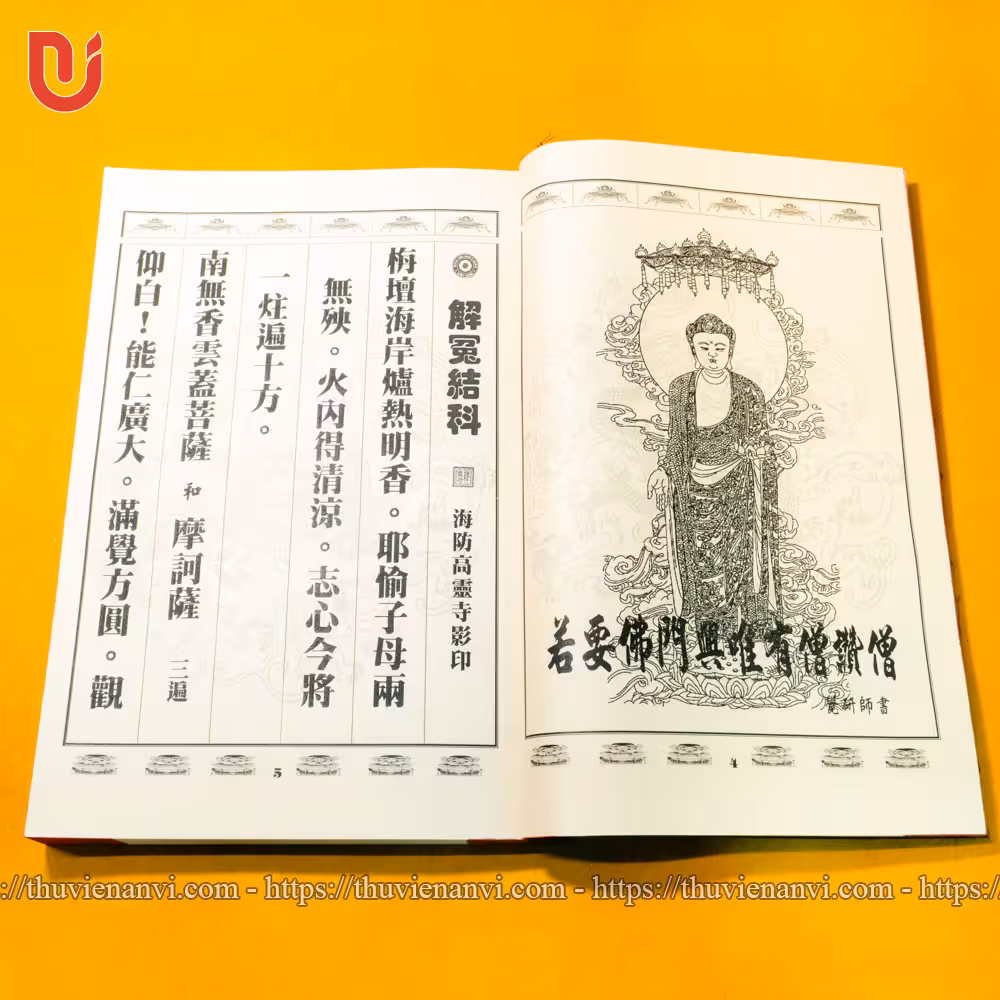 若要佛門興唯有僧讚僧
覺研師書
4
解冤結科 海防高靈寺影印
栴壇海岸爐熱明香。耶愉子母兩
無殃。火內得清涼。志心今將
一炷遍十方。
南無香雲蓋菩薩 和 摩訶薩 三遍
仰白！能仁廣大。滿覺方圓。觀
5
://thuvienanvi.com - https://thuvienanvi.com - https://thuvienanvi.com - https